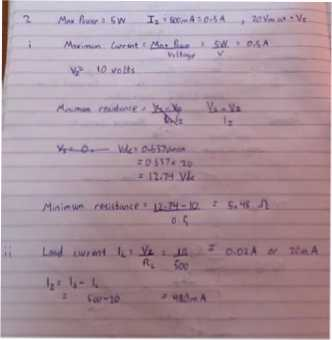 2 Max Power = 5W I₂ = 500mA = 0.5A , 20Vm ut - Vs
i Maximum Current = Max Power / Voltage = 5W / V = 0.5A
V₂ = 10 volts
Minimum resistance = Vs - V₂ / I₂
Vs = 0. Vdc = 0.637Vmax
= 0.637 x 20
= 12.74 Vdc
Minimum resistance = 12.74-10 / 0.5 = 5.48 Ω
ii Load current IL = Vz / RL = 10 / 500 = 0.02A or 20mA
I₂ = Is - IL
= 500-20 = 480mA